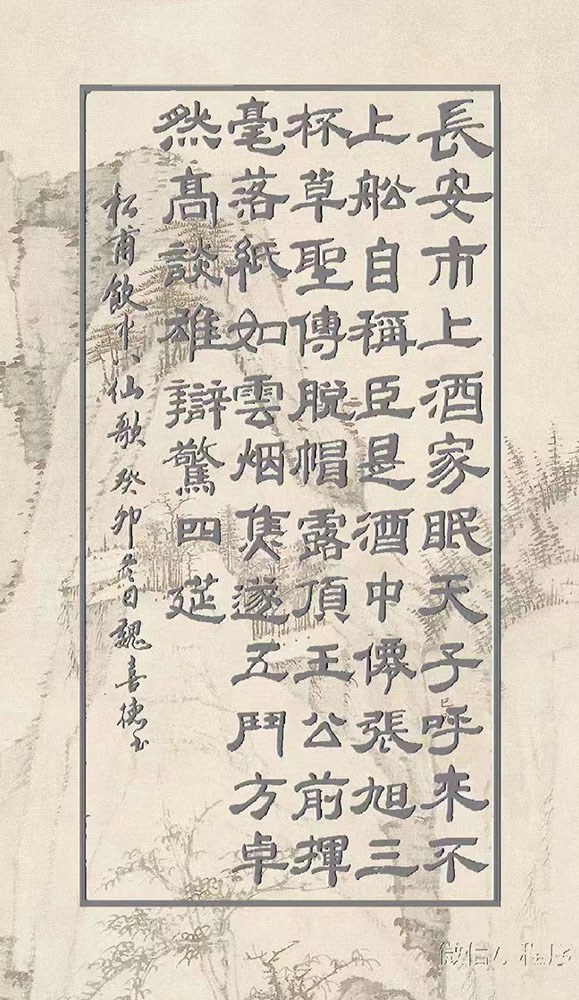 長安市上酒家眠天子呼来不
上舩自稱臣是酒中僊張旭三
杯草聖傳脱帽露頂王公前揮
毫落紙如雲烟焦遂五鬥方卓
然髙談雄辯驚四筵
杜甫飲中八仙歌 癸卯冬日魏喜德书
微信小程序